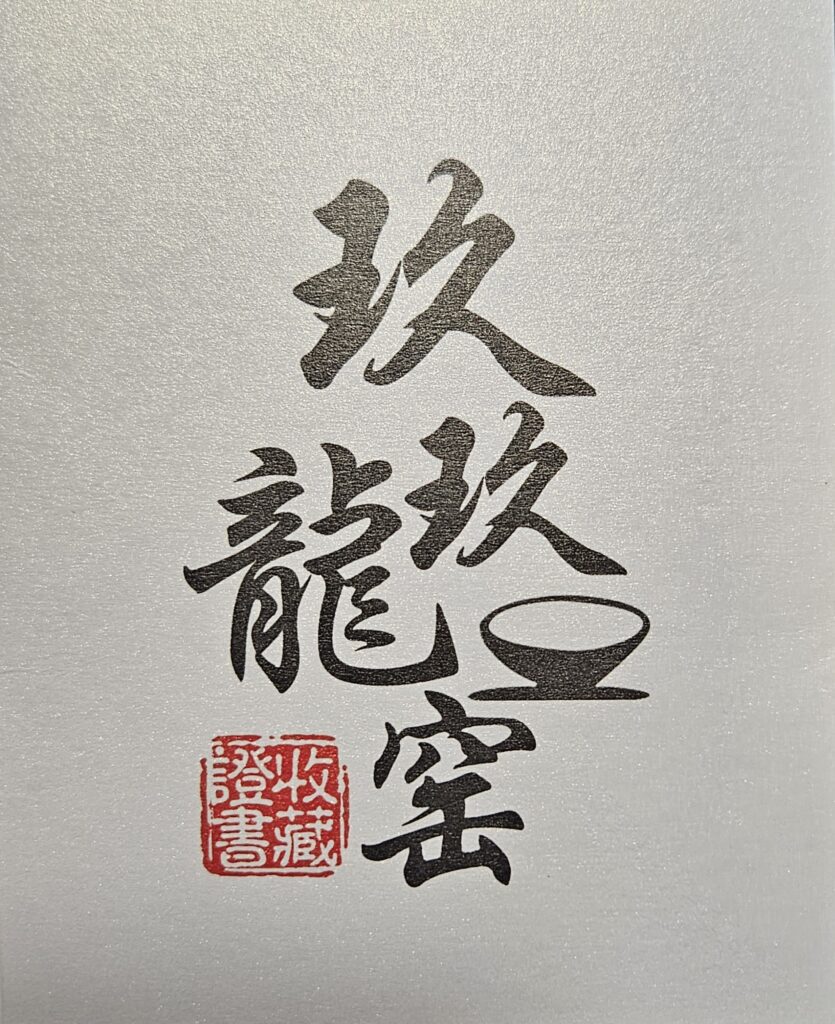 玖玖龍窑
收藏證書